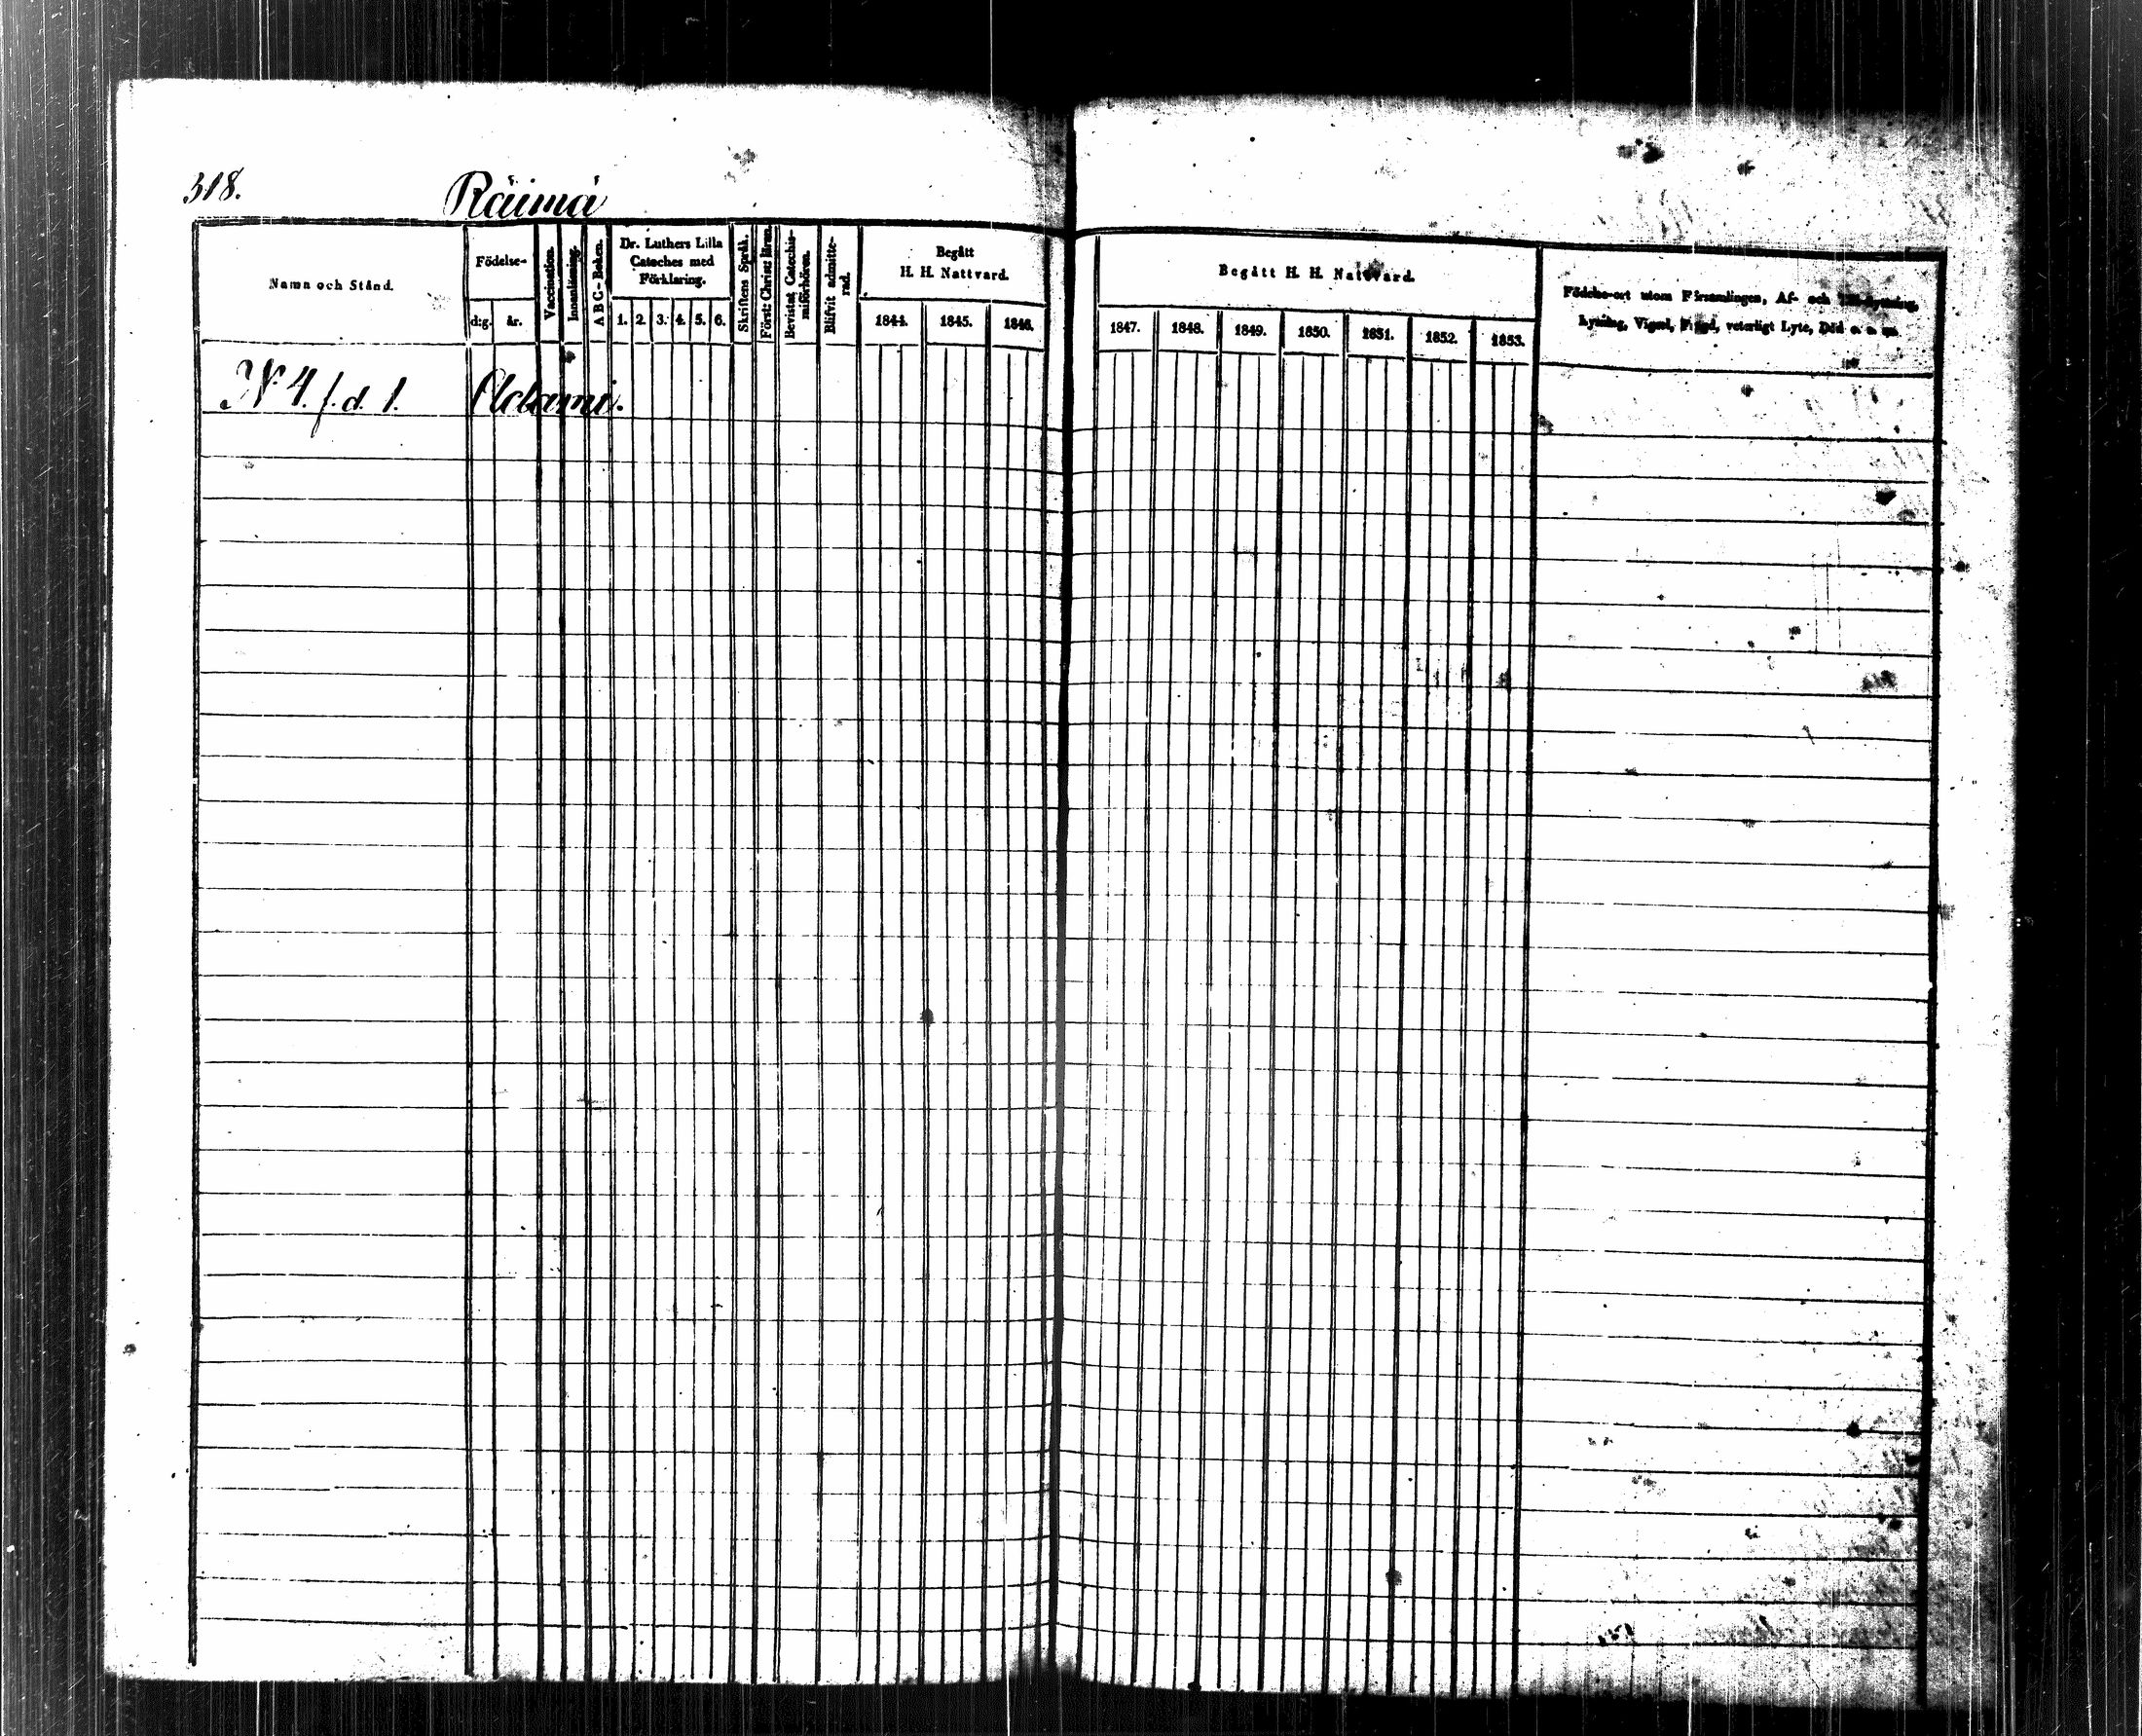 318.
Räimä
Namn och Stånd.
Födelse-
d:g. år.
Vaccination.
Innanläsning.
A B C-Boken.
Dr. Luthers Lilla
Cateches med
Förklaring.
1. 2. 3. 4. 5. 6.
Skriftens Språk.
Först: Christ: läran.
Bevistat Catechis-
miförhören.
Blifvit admitte-
rad.
Begått
H. H. Nattvard.
1844. 1845. 1846.
Begått H. H. Nattvard.
1847. 1848. 1849. 1850. 1851. 1852. 1853.
Födelse-ort utom Församlingen, Af- och
Lysning, Vigsel, veterligt Lyte, Död o. s. m.
No 4. f. d. 1.